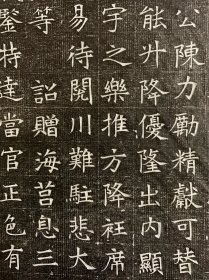 公陳力勵精獻可替
能升降優隆出内顯
宇之樂推方降衽席
易待閱川難駐悲大
等　詔贈海莒息三
鑒特達當官正色有